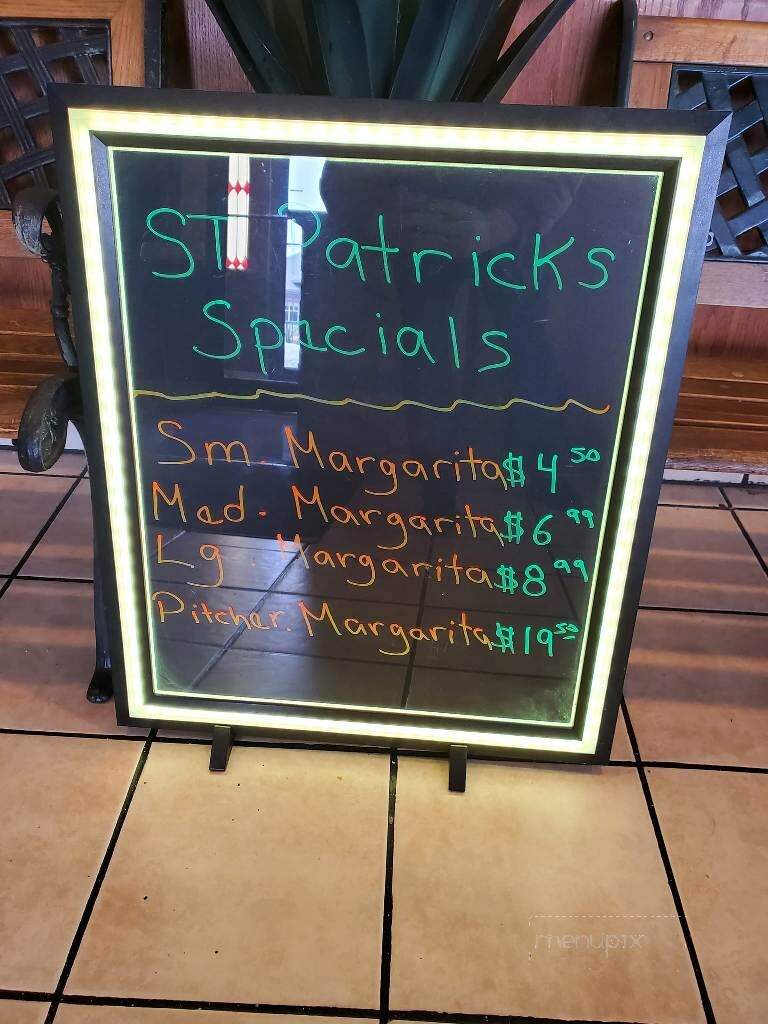 ST Patricks
Specials
Sm. Margarita $4 50
Med. Margarita $6 99
Lg. Margarita $8 99
Pitcher. Margarita $19 50
menupix